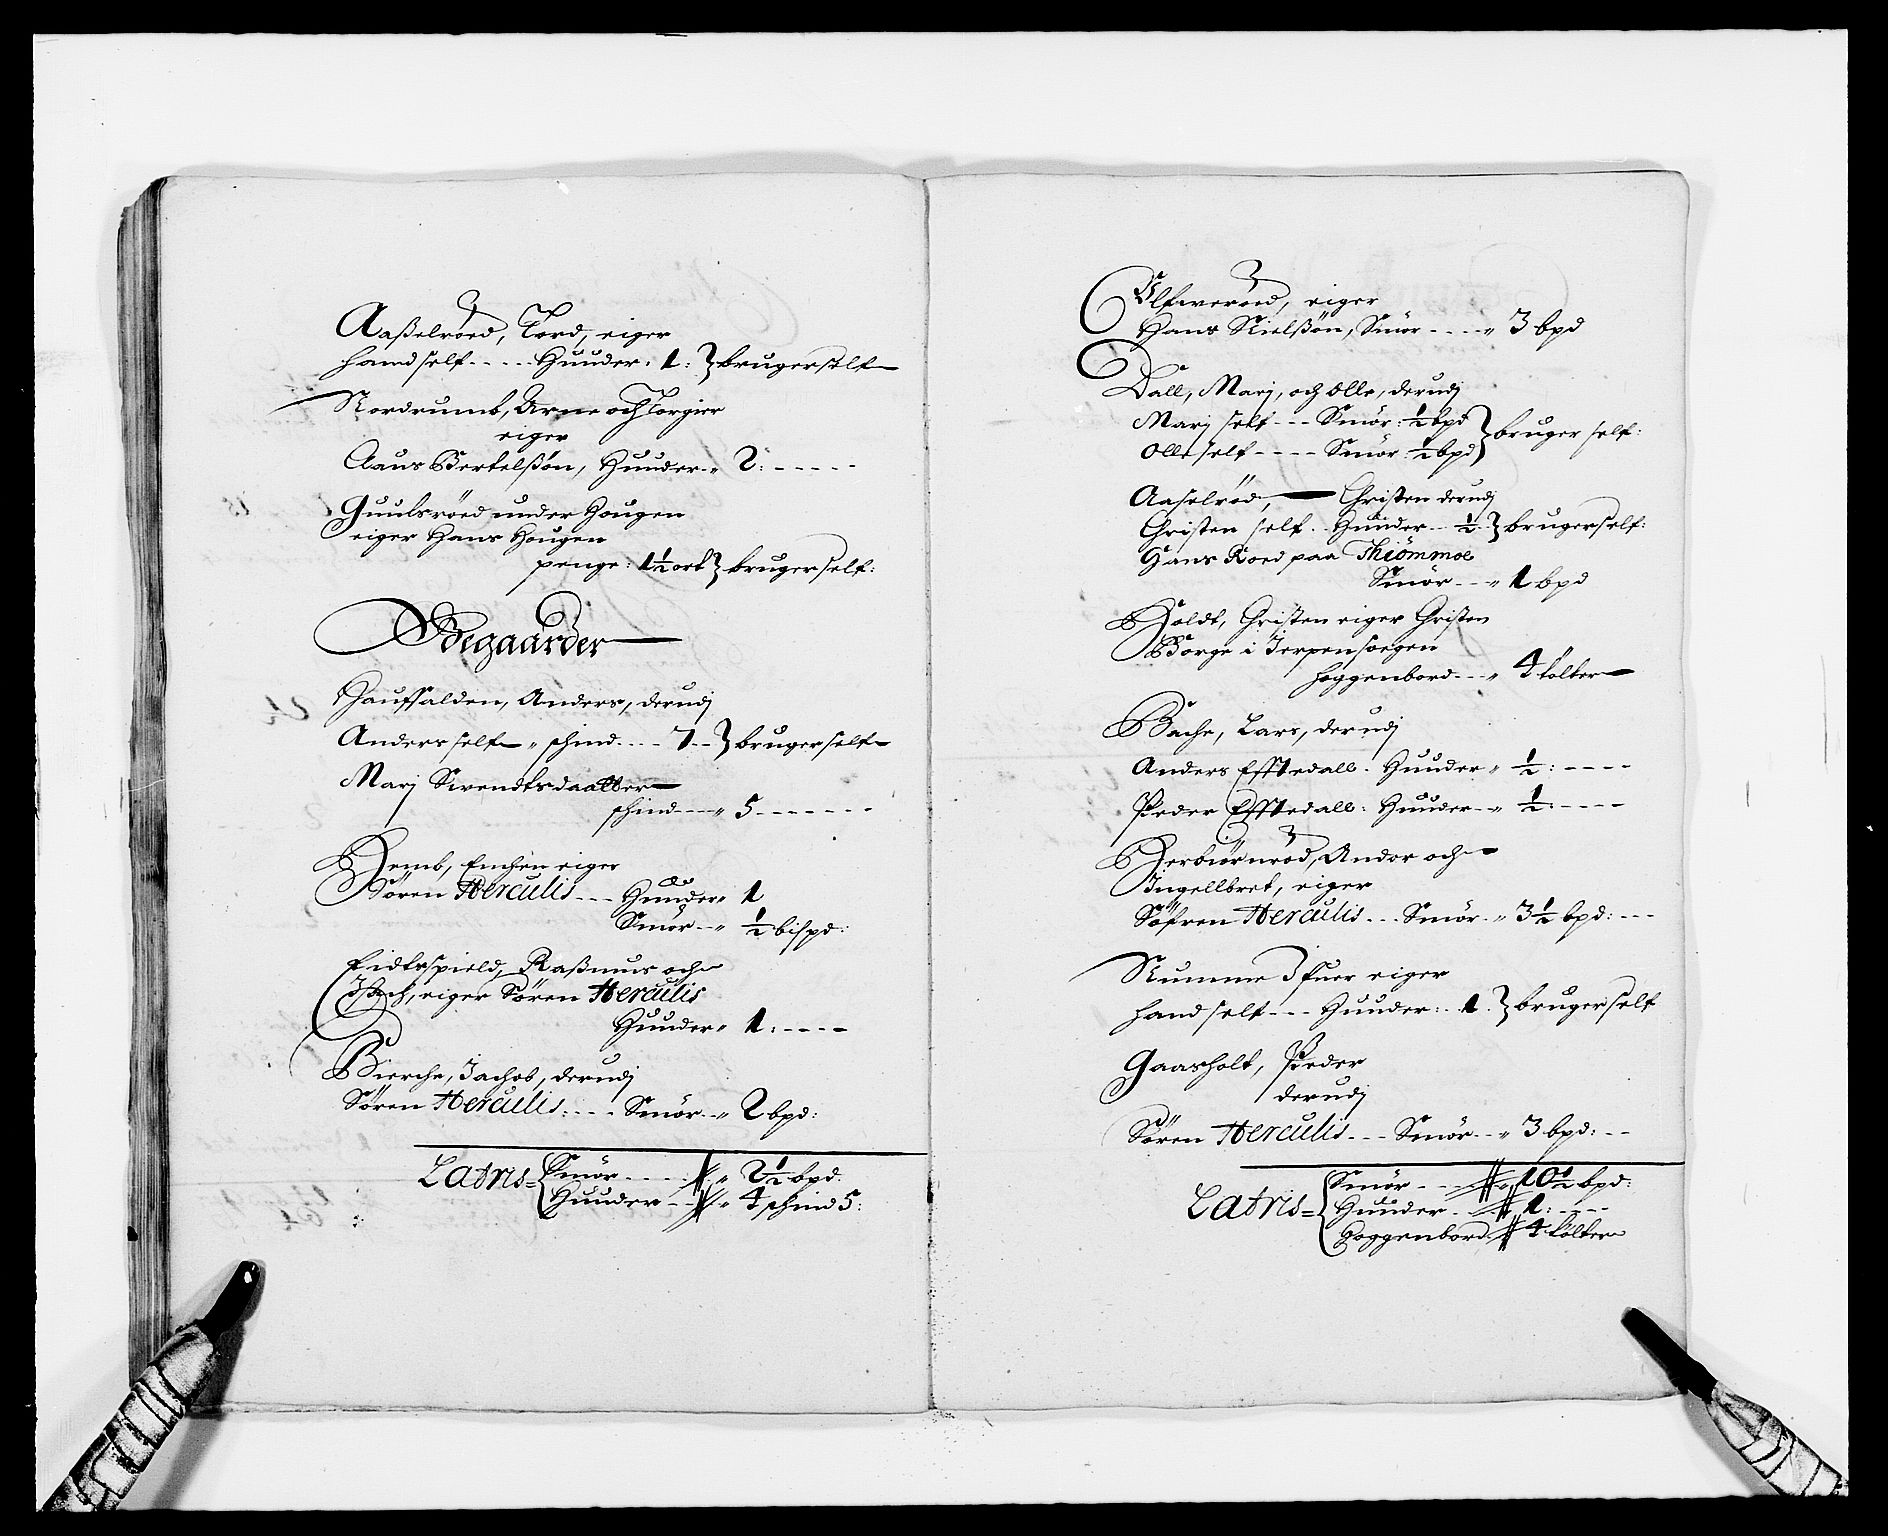 Aaßelröed, Tord, eiger
hand self - - - - Huuder: 1: } bruger self
Nordrumb, Arne och Torgier
eiger
Claus Bertelßön, Huuder 2: - - - - -
Guulsröed under Hougen
eiger Hans Hougen
penge: 1½ ort } bruger self:
Ödegaarder
Anders, derudj
Anders self schind - - - - 7 - - } bruger self
Marj Swendtsdaatter
schind - - - 5 - - - - - -
eiger
Sören Herculis - - - Huuder 1
Smör - - ½ bispd:
Rasmus och
eiger Sören Herculis
Huuder 1: - - - -
Bierche, Jachob, derudj
Sören Herculis: - - - Smör - - 2 bpd:
Latris = { Smör - - - - 2½ bpd.
Huuder - - 4 schind 5:
eiger
Hans Nielßön, Smör - - - - 3 bpd
Dall, Marj, och Olle, derudj
Marj self - - - Smör: ½ bpd } bruger self:
Olle self - - - - Smör: ½ bpd
Aaselröd, Christen derudj
Christen self. Huuder - - ½ } bruger self:
Hans Roed paa Thiömmoe
Smör - - - 1 bpd
Holdt, Christen eiger Christen
Borge i Jerpenskogen
hoggenbord - - - 4 tolter
Bache, Lars, derudj
Anders Efftedall. Huuder ½: - - - -
Peder Efftedall: Huuder - - ½: - - - -
Herbiörnröd, Andor och
Ingellbret, eiger
Söfren Herculis - - - Smör - 3½ bpd: - - -
Rumme Ifuer eiger
hand self - - - Huuder: - 1 } bruger self
Gaasholt, Peder
derudj
Sören Herculis - - - Smör - - 3 bpd: - -
Latris = { Smör - - - - 10½ bpd:
Huuder - - 1: - - - -
Hoggenbord 4 tolter